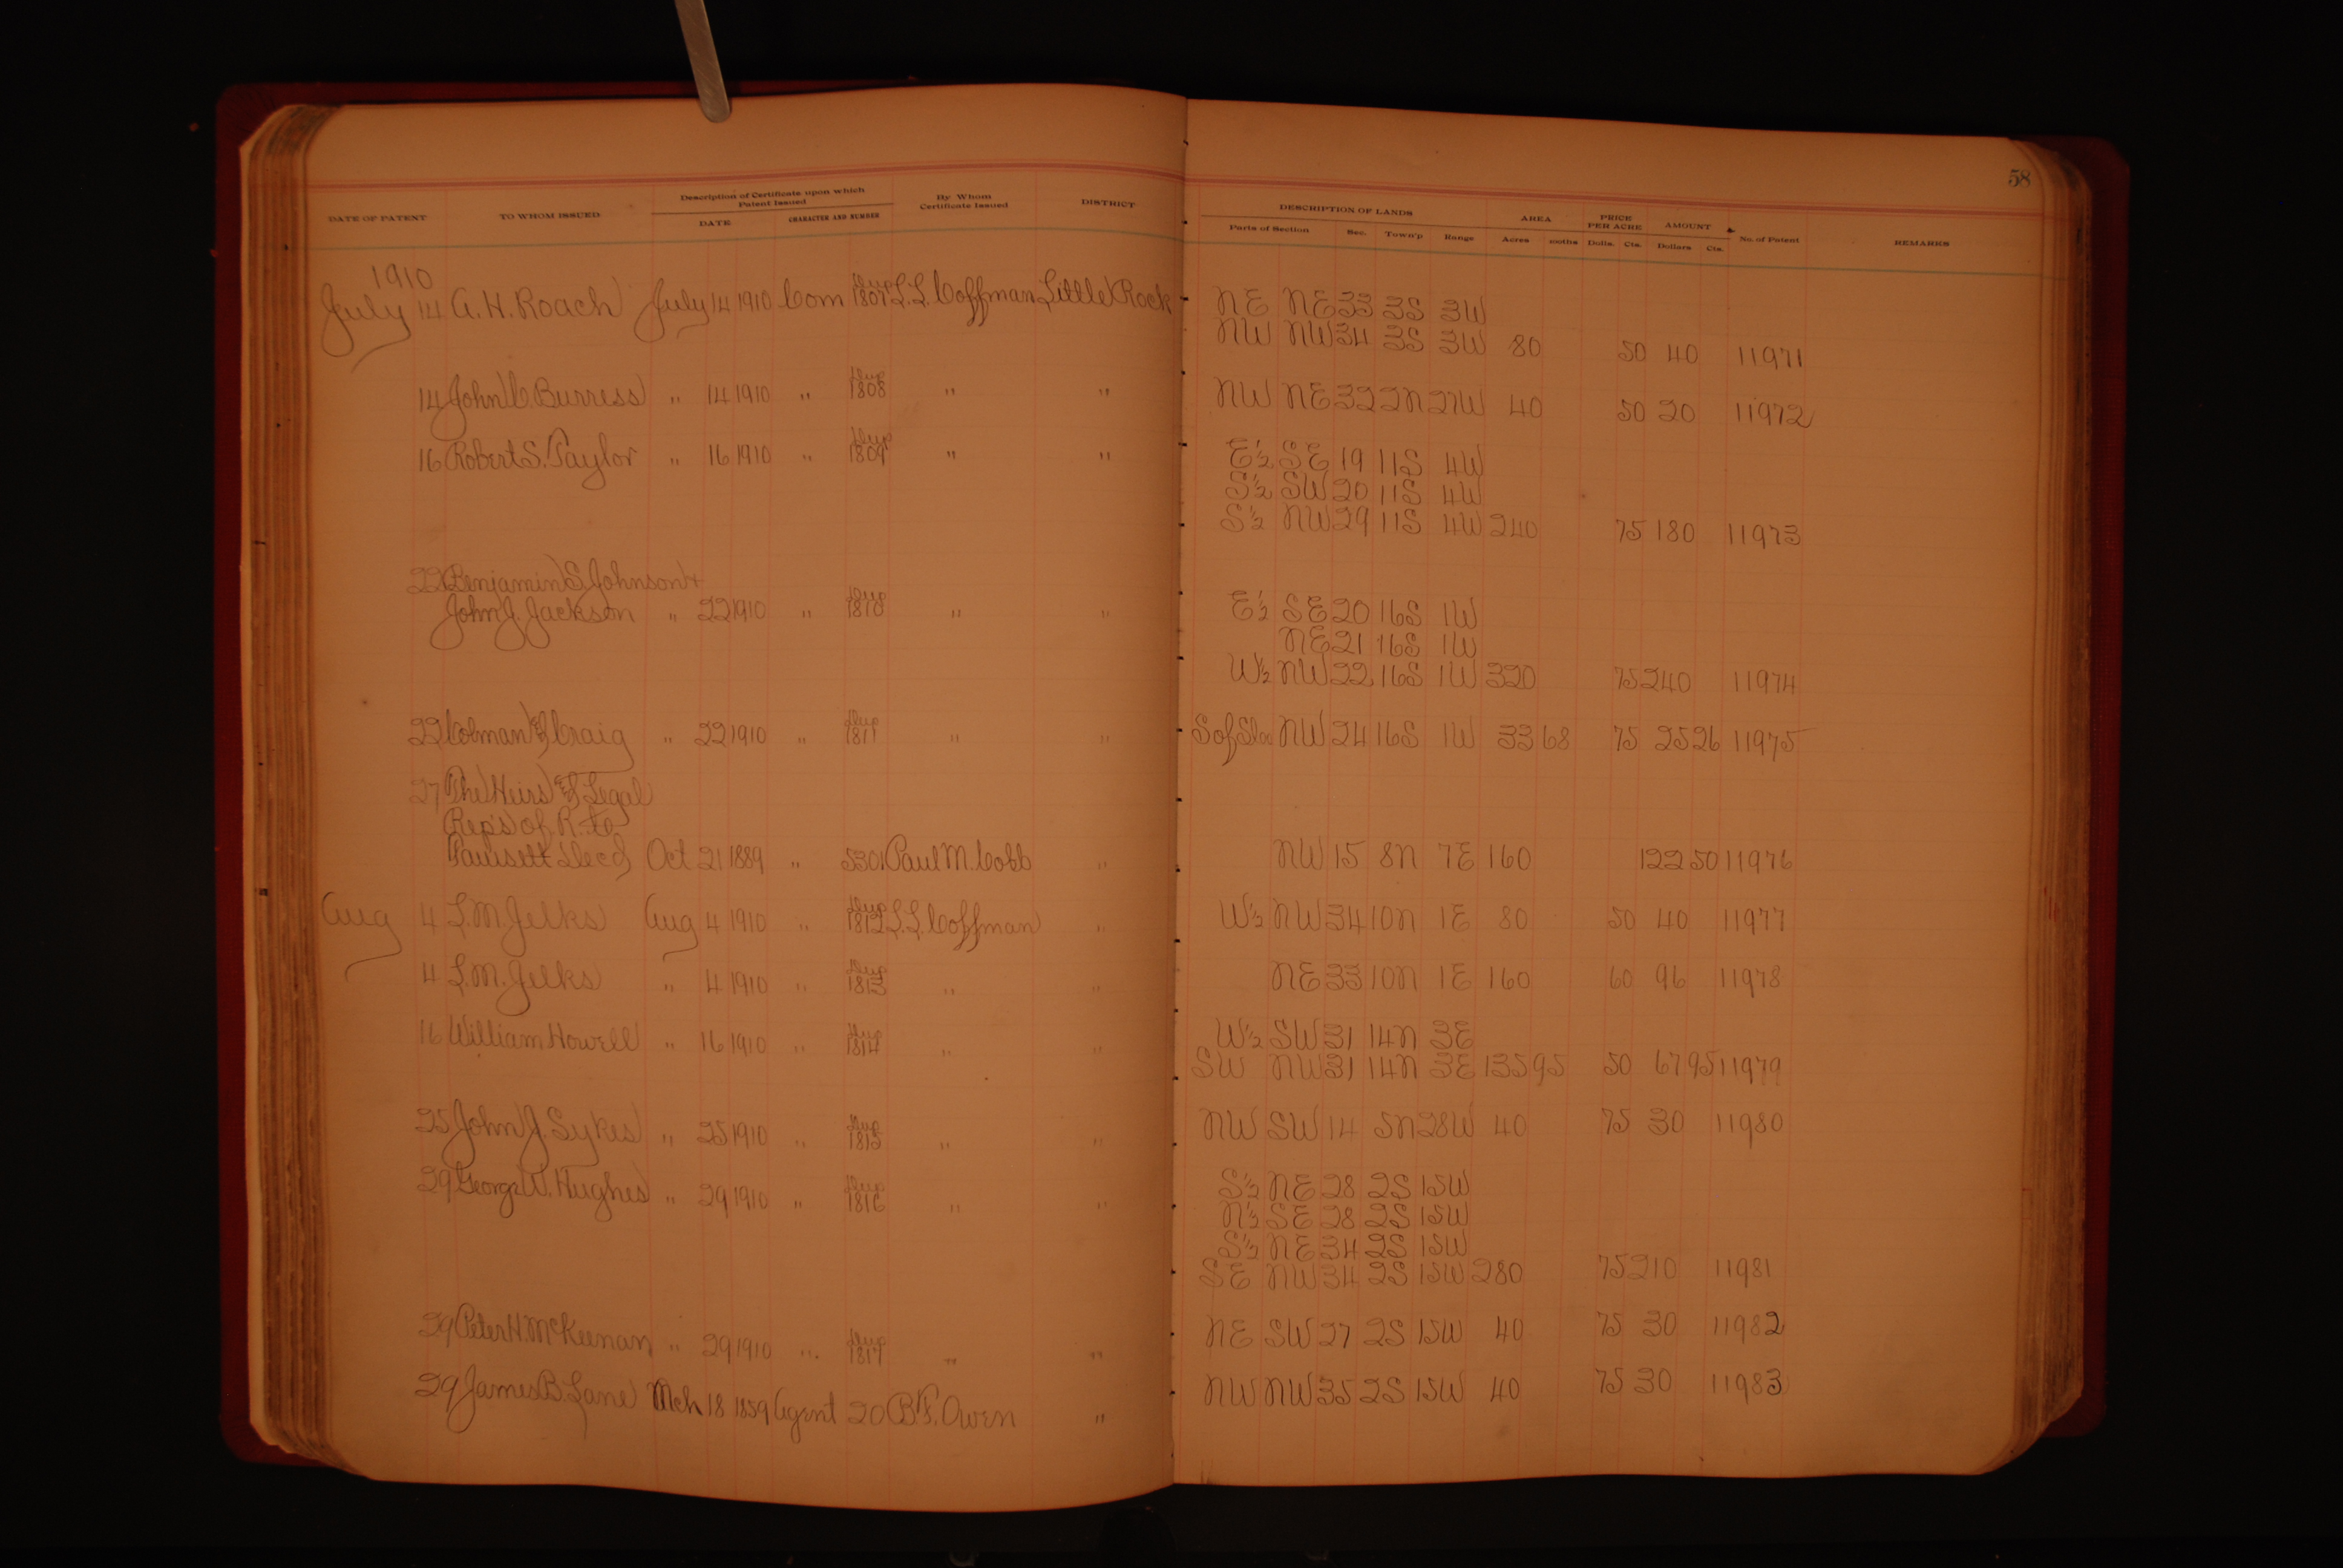 58
DATE OF PATENT TO WHOM ISSUED Description of Certificate upon which Patent Issued DATE CHARACTER AND NUMBER By Whom Certificate Issued DISTRICT DESCRIPTION OF LANDS Parts of Section Sec. Town'p Range AREA Acres 100ths PRICE PER ACRE Dolls. Cts. AMOUNT Dollars Cts. No. of Patent REMARKS
1910
July 14 A. H. Roach July 14 1910 Com Dup 1807 L. L. Coffman Little Rock NE NE 33 3S 3W
NW NW 34 3S 3W 80 50 40 11971
14 John C. Burress " 14 1910 " Dup 1808 " " NW NE 32 2N 27W 40 50 20 11972
16 Robert S. Taylor " 16 1910 " Dup 1809 " " E½ SE 19 11S 4W
S½ SW 20 11S 4W
S½ NW 29 11S 4W 240 75 180 11973
22 Benjamin S. Johnson &
John J. Jackson " 22 1910 " Dup 1810 " " E½ SE 20 16S 1W
NE 21 16S 1W
W½ NW 22 16S 1W 320 75 240 11974
22 Colman & Craig " 22 1910 " Dup 1811 " " S of Slou NW 24 16S 1W 33 68 75 25 26 11975
27 The Heirs & Legal
Reps of R.
Dec'd Oct 21 1889 " 5301 Paul M. Cobb " NW 15 8N 7E 160 122 50 11976
Aug 4 L. M. Jelks Aug 4 1910 " Dup 1812 L. L. Coffman " W½ NW 34 10N 1E 80 50 40 11977
4 L. M. Jelks " 4 1910 " Dup 1813 " " NE 33 10N 1E 160 60 96 11978
16 William Howell " 16 1910 " Dup 1814 " " W½ SW 31 14N 3E
SW NW 31 14N 3E 135 95 50 67 95 11979
25 John J. Sykes " 25 1910 " Dup 1815 " " NW SW 14 5N 28W 40 75 30 11980
29 George W. Hughes " 29 1910 " Dup 1816 " " S½ NE 28 2S 15W
N½ SE 28 2S 15W
S½ NE 34 2S 15W
SE NW 34 2S 15W 280 75 210 11981
29 Peter H. McKeenan " 29 1910 " Dup 1817 " " NE SW 27 2S 15W 40 75 30 11982
29 James B. Lane Mch 18 1859 Agent 20 B. F. Owen " NW NW 35 2S 15W 40 75 30 11983